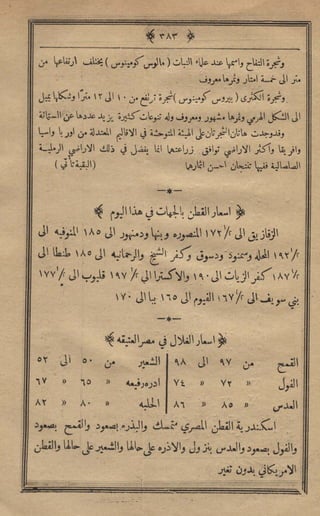 ﴿ ٣٨٣ ﴾
وشجرة التفاح واسمها عند علماء النبات ( مالوس كومينوس ) يختلف أرتفاعها من
متر الى خمسة امتار وثمرها معروف
وشجرة الكمثرى ( بيروس كومينوس ) شجرة ترتفع من ١٠ الى ١٢ مترًا وشكلها يميل
الى الشكل الهرمي وثمرها مشهور ومعروف وله تنوعات كثيرة يزيد عددها عن الستمائة
وقد وجدت هاتان الشجرتان على الهيئة المتوحشة في الاقاليم المعتدلة من اوربا واسيا
وافريقا واكثر الاراضي توافق زراعتهما انما يفضل في ذلك الاراضي الرملية
الصلصالية ففيها تنتجان احسن اثمارها ( البقية تأتي )
﴿ اسعار القطن بالجهات في هذا اليوم ﴾
الزقازيق الى ١٧٢ المنصوره وبنها ودمنهور الى ١٨٥ المنوفيه الى
١٩٢ المحله وسمنود ودسوق وكفر الشيخ والرحمانيه الى ١٨٥ طنطا الى
١٨٧ كفر الزيات الى ١٩٠ والاكسترا الى ١٩٧ قليوب الى ١٧٧
بني سويف الى ١٦٧ الفيوم الى ١٦٥ ببا الى ١٧٠
﴿ اسعار الغلال في مصر العتيقه ﴾
القمح من ٩٧ الى ٩٨ الشعير من ٥٠ الى ٥٢
الفول « ٧٢ « ٧٤ اذره رفيعه « ٦٥ « ٦٧
العدس « ٨٥ « ٨٦ الحلبه « ٨٠ « ٨٢
اسكندرية القطن المصري متمسك والبذره بصعود والقمح بصعود
والفول بصعود والعدس بنزول والاذره على حالها والشعير على حالها والقطن
الامريكاني بدون تغير